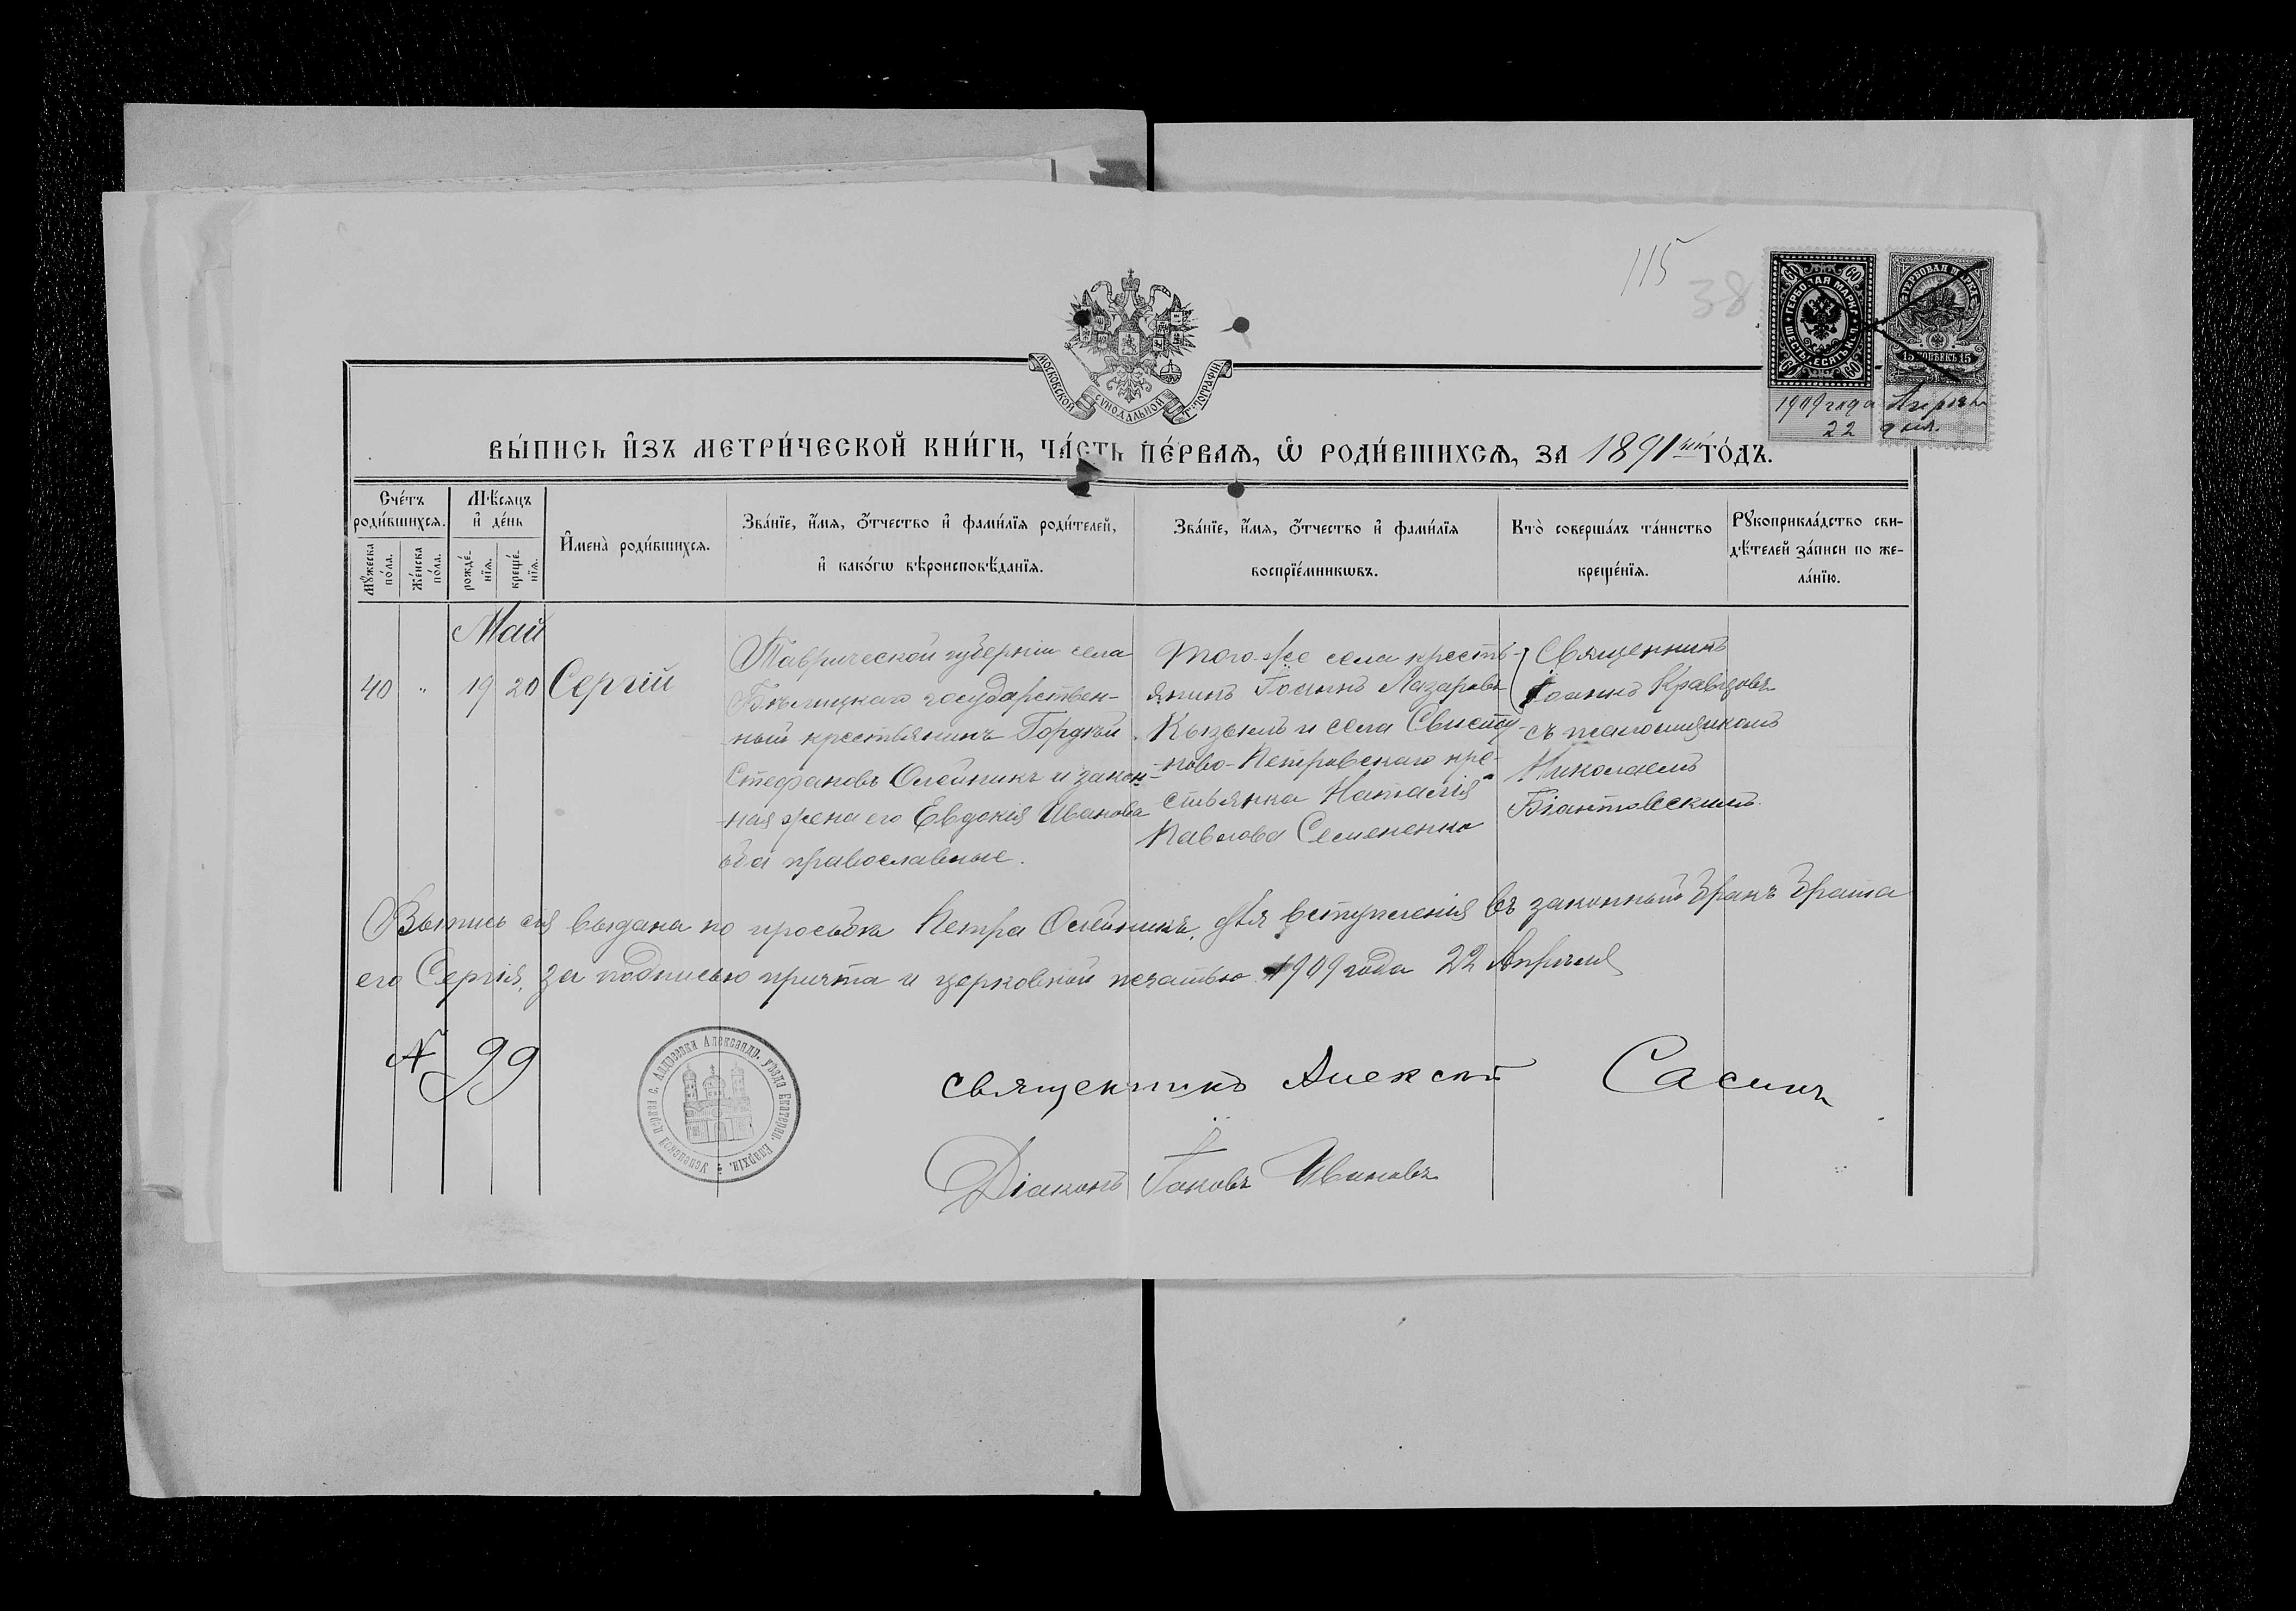 115
38
ГЕРБОВАЯ МАРКА
ШЕСТЬДЕСЯТЪ КОП.
60 60 60 60
ГЕРБОВАЯ МАРКА
15 КОПѢЕКЪ 15
1909 года Апрѣля
22 дня.
МОСКОВСКОЙ СѴНОДАЛЬНОЙ ТѴПОГРАФІИ
ВЫ́ПИСЬ И҆ЗЪ МЕТРИ́ЧЕСКОЙ КНИ́ГИ, ЧА́СТЬ ПЕ́РВАѦ, Ѡ҆ РОДИ́ВШИХСѦ, ЗА 1891ый ГО́ДЪ.
Сче́тъ
роди́вшихсѧ.
Мꙋ́жеска
по́ла.
Же́нска
по́ла.
Мѣ́сяцъ
и҆ де́нь
рожде́-
нїѧ.
креще́-
нїѧ.
И҆мена̀ роди́вшихсѧ.
Зва́нїе, и҆́мѧ, ѻ҆́тчество и҆ фами́лїѧ роди́телей,
и҆ како́гѡ вѣроисповѣ́данїѧ.
Зва́нїе, и҆́мѧ, ѻ҆́тчество и҆ фами́лїѧ
воспрїе́мникѡвъ.
Кто̀ соверша́лъ та́инство
креще́нїѧ.
Рꙋкоприкла́дство сви-
дѣ́телей за́писи по же-
ла́нїю.
Май
40 " 19 20 Сергій
Таврической губерніи села
Бѣлицкаго государствен-
ный крестьянинъ Гордѣй
Стефановъ Олейникъ и закон-
ная жена его Евдокія Иванова
оба православные.
Того-же села кресть-
янинъ Іоаннъ Лазаревъ
и села Свисту-
ново-Петровскаго кре-
стьянка Наталія
Павлова Семененко
Священникъ
Іоаннъ Кравцовъ
съ псаломщикомъ
Николаемъ
Біантовскимъ.
Выпись сія выдана по просьбѣ Петра Олейникъ, для вступленія въ законный бракъ брата
его Сергія, за подписью причта и церковной печатью 1909 года 22 Апрѣля
№ 99
Успенской церкви с. Андреевка Александр. уѣзда Екатерин. Епархіи.
Священникъ Алексѣй Сасинъ
Діаконъ Іаковъ Ивановъ